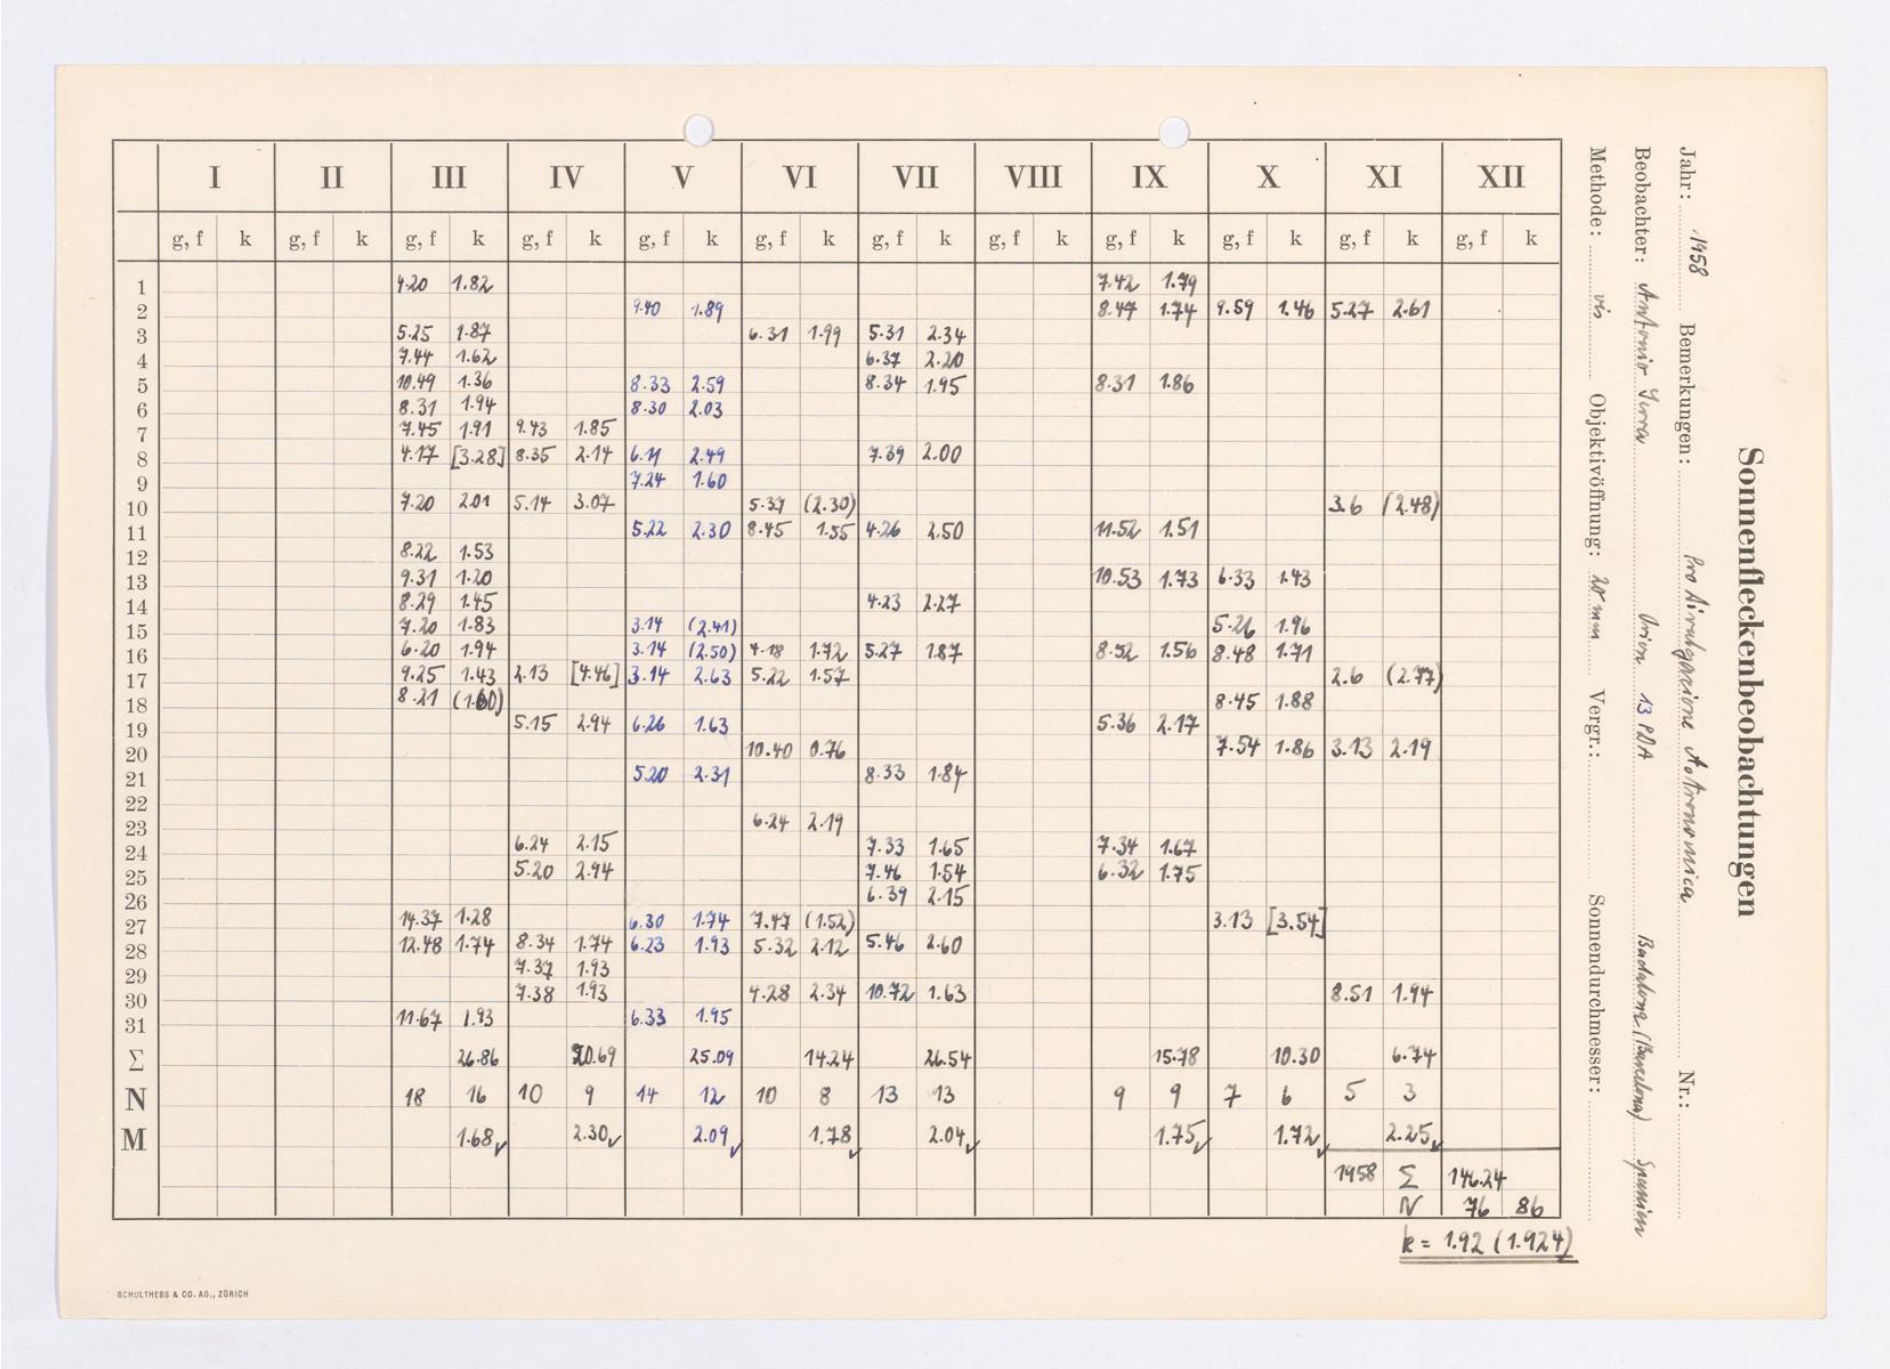 Sonnenfleckenbeobachtungen
Jahr: 1958 Bemerkungen: Astronomica Nr.:
Beobachter: Antonio Orion 13 PDA Badalona (Barcelona) Spanien
Methode: vis Objektivöffnung: 20 mm Vergr.: Sonnendurchmesser:
I II III IV V VI VII VIII IX X XI XII
g, f k g, f k g, f k g, f k g, f k g, f k g, f k g, f k g, f k g, f k g, f k g, f k
1 4.20 1.82 7.42 1.79
2 9.40 1.89 8.47 1.74 9.59 1.46 5.27 2.61
3 5.25 1.87 6.31 1.99 5.31 2.34
4 7.44 1.62 6.37 2.20
5 10.49 1.36 8.33 2.59 8.34 1.95 8.31 1.86
6 8.31 1.94 8.30 2.03
7 7.45 1.91 9.43 1.85
8 4.17 [3.28] 8.35 2.14 6.11 2.49 7.39 2.00
9 7.24 1.60
10 7.20 2.01 5.14 3.07 5.37 (2.30) 3.6 (2.48)
11 5.22 2.30 8.45 1.55 4.26 2.50 11.52 1.51
12 8.22 1.53
13 9.31 1.20 10.53 1.73 6.33 1.43
14 8.29 1.45 4.23 2.27
15 7.20 1.83 3.14 (2.41) 5.26 1.96
16 6.20 1.94 3.14 (2.50) 4.18 1.72 5.27 1.87 8.52 1.56 8.48 1.71
17 9.25 1.43 2.13 [4.46] 3.14 2.63 5.22 1.57 2.6 (2.77)
18 8.21 (1.60) 8.45 1.88
19 5.15 2.94 6.26 1.63 5.36 2.17
20 10.40 0.76 7.54 1.86 3.13 2.19
21 5.20 2.31 8.33 1.84
22
23 6.24 2.19
24 6.24 2.15 7.33 1.65 7.34 1.67
25 5.20 2.94 7.46 1.54 6.32 1.75
26 6.39 2.15
27 14.37 1.28 6.30 1.74 7.47 (1.52) 3.13 [3.54]
28 12.48 1.74 8.34 1.74 6.23 1.93 5.32 2.12 5.46 2.60
29 7.37 1.93
30 7.38 1.93 4.28 2.34 10.72 1.63 8.51 1.94
31 11.67 1.93 6.33 1.95
Σ 26.86 20.69 25.09 14.24 26.54 15.78 10.30 6.74
N 18 16 10 9 14 12 10 8 13 13 9 9 7 6 5 3
M 1.68 2.30 2.09 1.78 2.04 1.75 1.72 2.25
1958 Σ 146.24
N 76 86
k = 1.92 (1.924)
SCHULTHESS & CO. AG., ZÜRICH